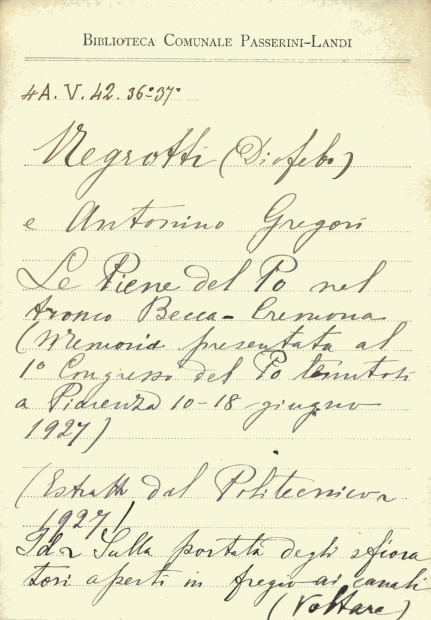 BIBLIOTECA COMUNALE PASSERINI-LANDI
4A. V. 42. 36º-37º
Negrotti (Diofebo)
e Antonino Gregori
Le Piene del Po nel
tronco Becca-Cremona
(Memoria presentata al
1º Congresso del Po tenutosi
a Piacenza 10-18 giugno
1927)
(Estratto dal Politecnico
1927)
Id. Sulla portata degli sfiora
tori aperti in fregio ai canali
(Voltare)